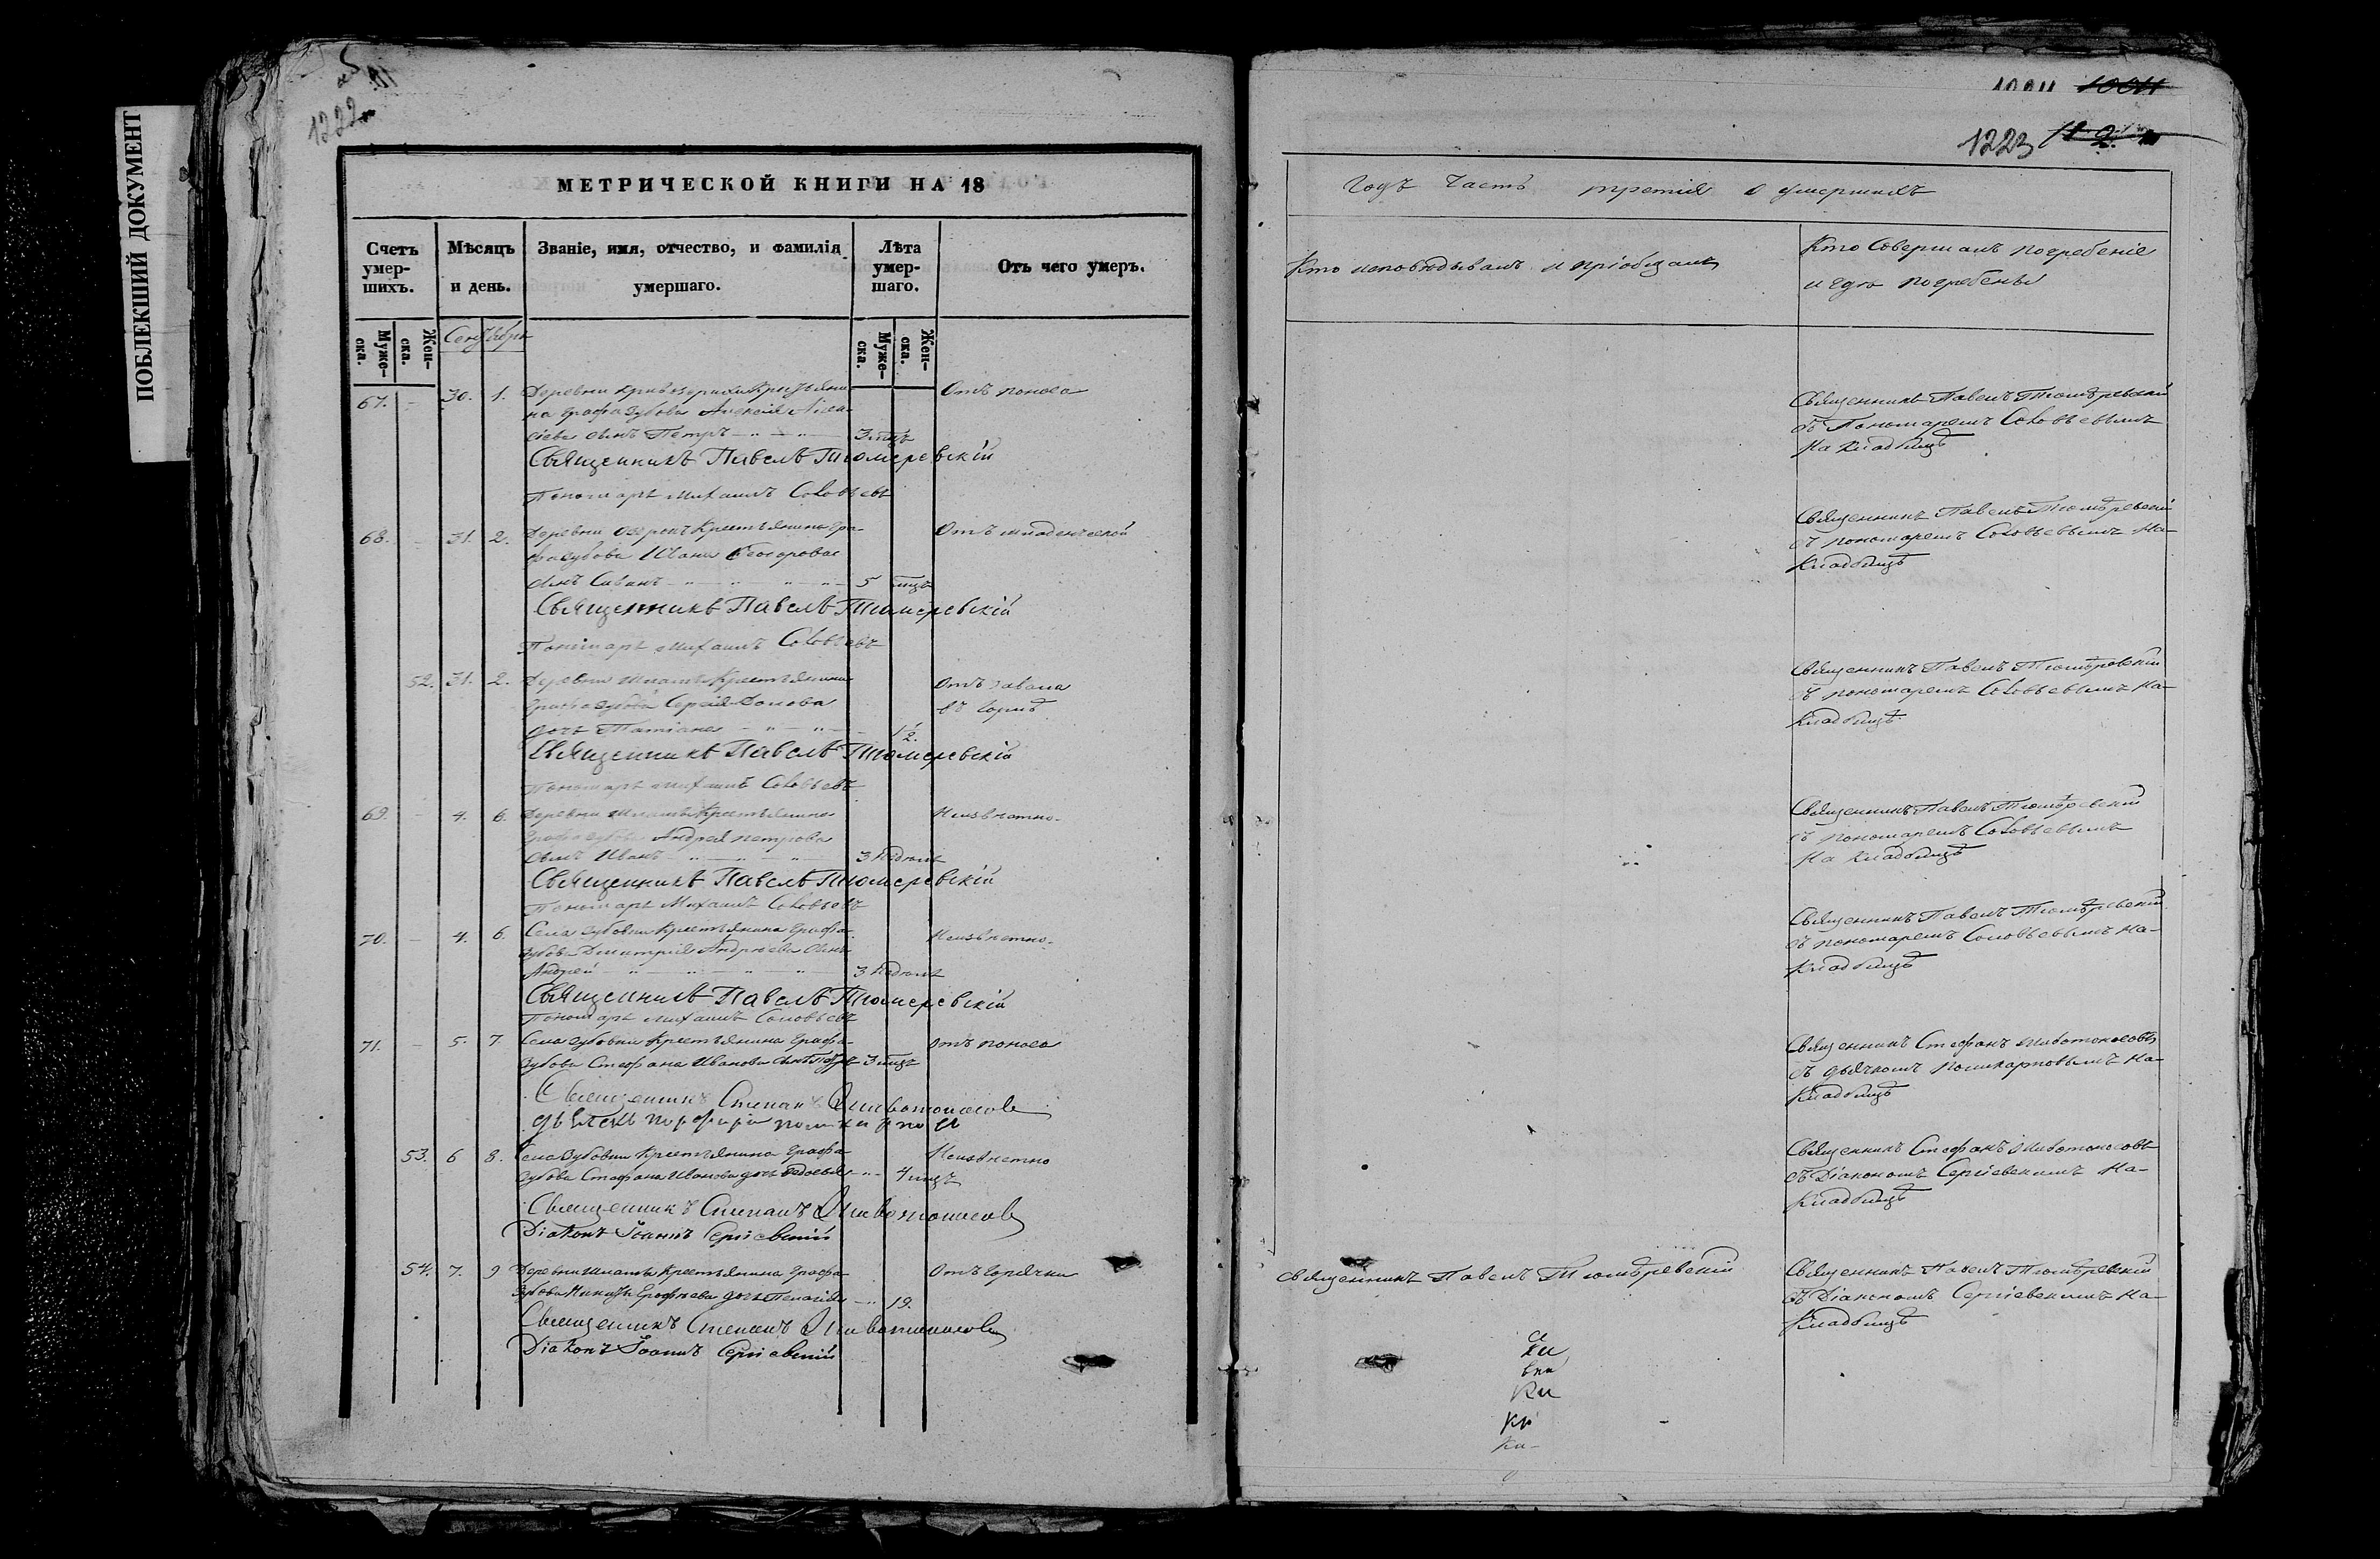 ПОБЛЕКШИЙ ДОКУМЕНТ
1222
МЕТРИЧЕСКОЙ КНИГИ НА 18
Счетъ умер-шихъ.
Мѣсяцъ и день.
Званіе, имя, отчество, и фамилія умершаго.
Лѣта умер-шаго.
Отъ чего умеръ.
Муже-ска.
Жен-ска.
Сентября
Муже-ска.
Жен-ска.
67. 30. 1. Деревни Крестьяни- Отъ поноса
на Графа Зубова Алексія
сынъ Петръ 3 мцъ
Священникъ Павелъ Тюмеревскій
Пономарь Михаилъ Соловьевъ
68. 31. 2. Деревни Озерокъ Крестьянина Гра- Отъ младенческой
фа Зубова Ивана Феодорова
сынъ 5 мцъ
Священникъ Павелъ Тюмеревскій
Пономарь Михаилъ Соловьевъ
52. 31. 2. Деревни Крестьянина Отъ
Графа Зубова Сергія въ горлѣ
дочь Татіана
Священникъ Павелъ Тюмеревскій
Пономарь Михаилъ Соловьевъ
69. 4. 6. Деревни Крестьянина Неизвѣстно.
Графа Зубова Андрея Петрова
сынъ Иванъ 3 недѣли
Священникъ Павелъ Тюмеревскій
Пономарь Михаилъ Соловьевъ
70. 4. 6. Села Зубовки Крестьянина Графа Неизвѣстно.
Зубова Димитрія Андреева сынъ
Андрей 3 недѣли
Священникъ Павелъ Тюмеревскій
Пономарь Михаилъ Соловьевъ
71. 5. 7. Села Зубовки Крестьянина Графа Отъ поноса
Зубова Стефана Иванова сынъ Петръ 3 мцъ
Священникъ Степанъ Животоносовъ
дьячекъ Порфирій Поликарповъ
53. 6 8. Села Зубовки Крестьянина Графа Неизвѣстно
Зубова Стефана Иванова дочь 4 мцъ
Священникъ Степанъ Животоносовъ
Діаконъ Іоаннъ Сергіевскій
54. 7. 9 Деревни Крестьянина Графа Отъ горячки
Зубова Никиты Ерофеева дочь Пелагія 19.
Священникъ Степанъ Животоносовъ
Діаконъ Іоаннъ Сергіевскій
1004
1223
Годъ часть третія о умершихъ
Кто исповѣдывалъ и пріобщалъ
Кто совершалъ погребеніе
и гдѣ погребены
Священникъ Павелъ Тюмѣревскій
съ Пономаремъ Соловьевымъ
на Кладбищѣ
Священникъ Павелъ Тюмѣревскій
съ пономаремъ Соловьевымъ на
Кладбищѣ
Священникъ Павелъ Тюмѣревскій
съ пономаремъ Соловьевымъ на
Кладбищѣ
Священникъ Павелъ Тюмѣревскій
съ пономаремъ Соловьевымъ
на Кладбищѣ
Священникъ Павелъ Тюмѣревскій
съ пономаремъ Соловьевымъ на
Кладбищѣ
Священникъ Стефанъ Животоносовъ
съ дьячкомъ Поликарповымъ на
Кладбищѣ
Священникъ Стефанъ Животоносовъ
съ Діакономъ Сергіевскимъ на
Кладбищѣ
Священникъ Павелъ Тюмѣревскій
Священникъ Павелъ Тюмѣревскій
съ Діакономъ Сергіевскимъ на
Кладбищѣ